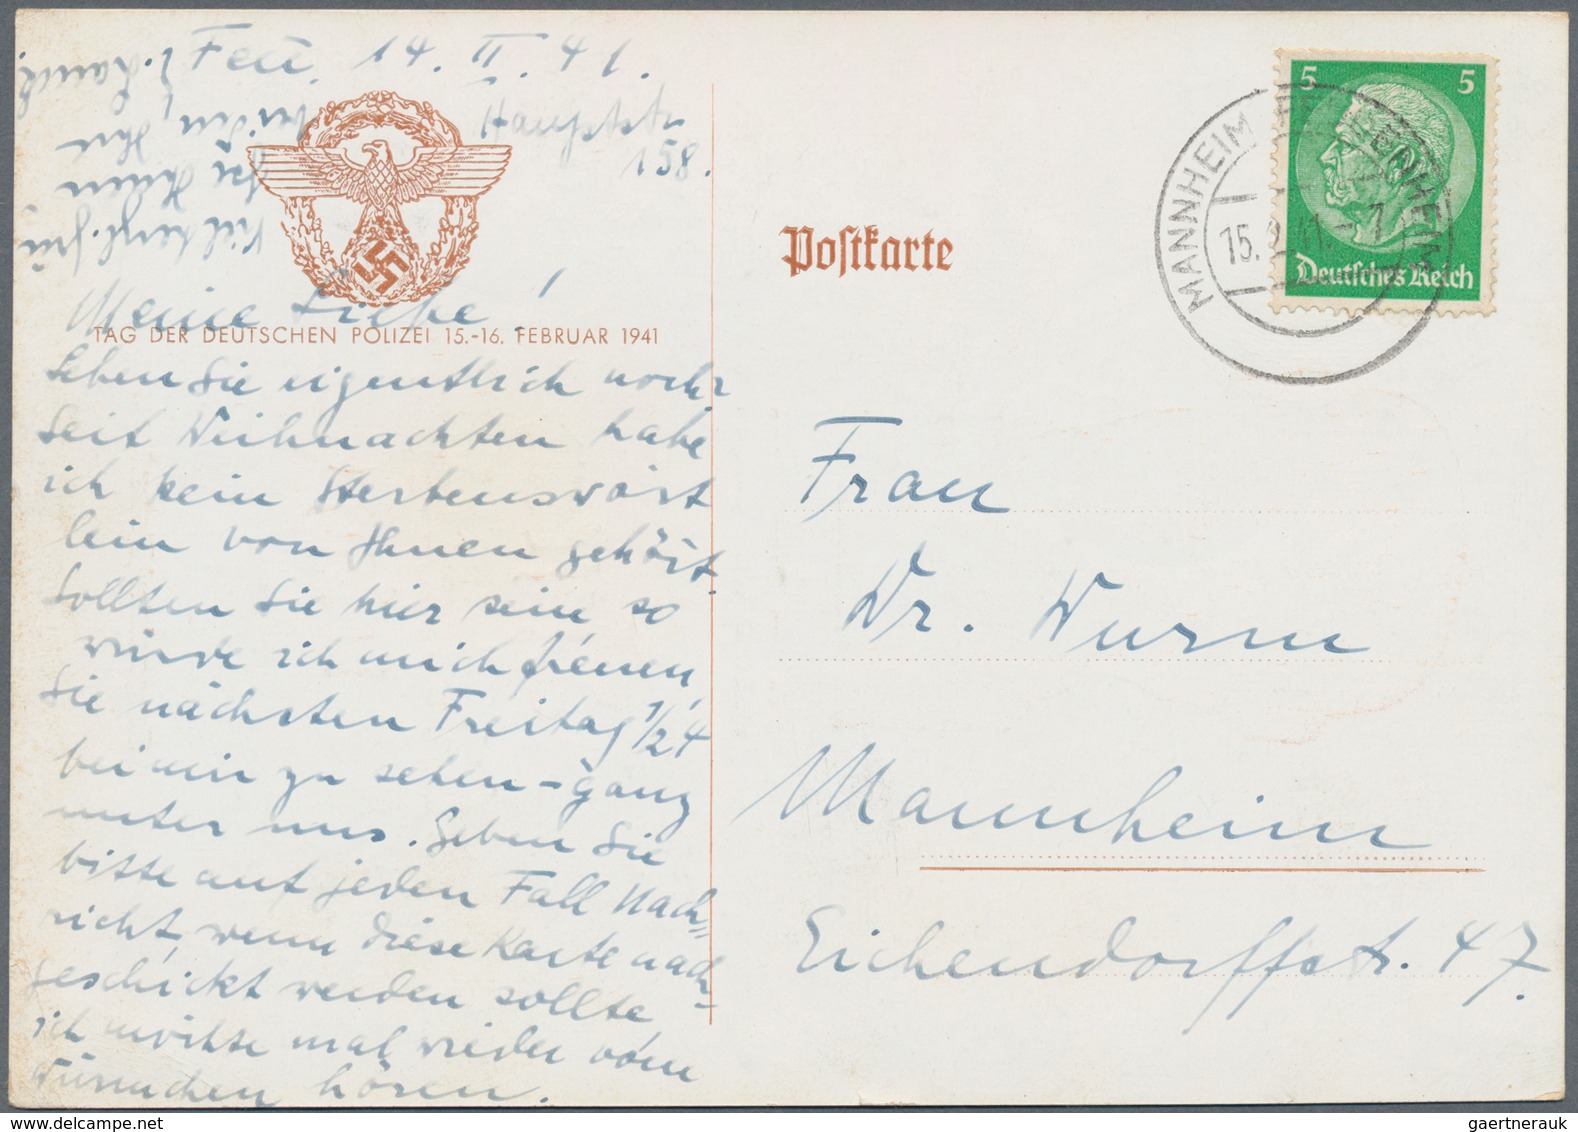 Feu. 14. II. 41.
Hauptstr
158.
Meine Liebe!
TAG DER DEUTSCHEN POLIZEI 15.-16. FEBRUAR 1941
Leben Sie eigentlich noch?
Seit Weihnachten habe
ich kein Sterbenswört
lein von Ihnen gehört.
Sollten Sie hier sein so
würde ich mich freuen,
Sie nächsten Freitag 1/2 4
bei mir zu sehen - ganz
unter uns. Geben Sie
bitte auf jeden Fall Nach=
richt, wenn diese Karte nach=
geschickt werden sollte,
ich möchte mal wieder vom
Würmchen hören.
Postkarte
5 5
Deutsches Reich
MANNHEIM
15.2.41.-7
Frau
Dr. Wurm
Mannheim
Eichendorffstr. 47.
gaertnerauk @ delcampe.net